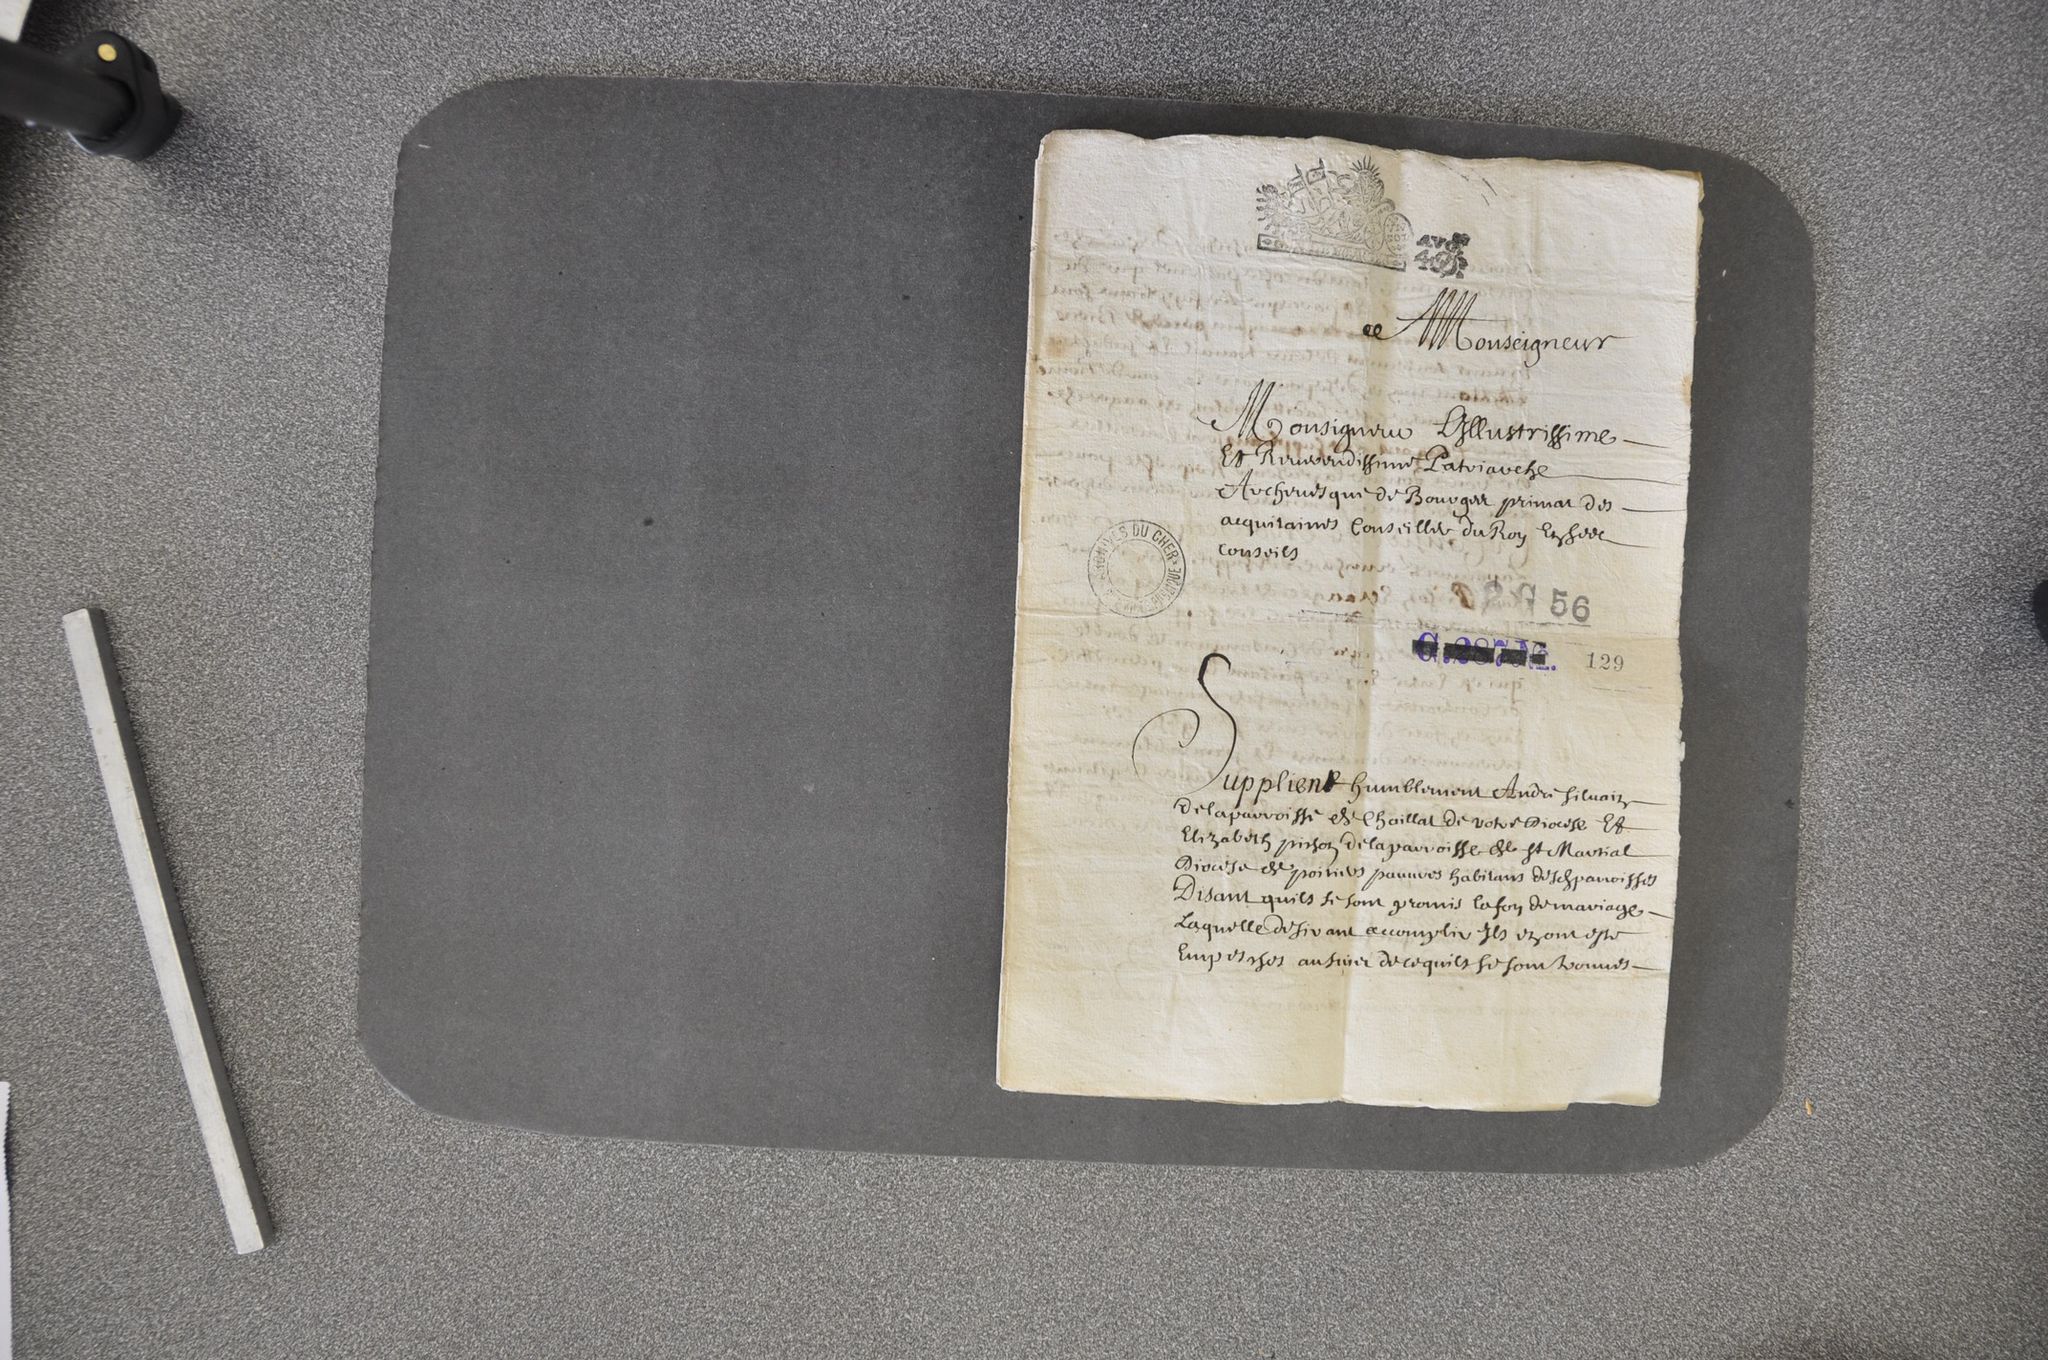 A Monseigneur
Monsigneur Lillustrissime
Et Reuerendissime Patriarche
Archeuesque de Bourges primat des
acquitaines Conseiller du Roy En ses
conseils
ARCHIVES DU CHER
G 56
129
Supplient humblement André siluain
de la parroisse de Chaillat de votre Diocese Et
Elizabeth pinson de la parroisse de st Martial
Diocese de poitiers pauures habitans desd parroisses
Disant quils se sont promis la foy de mariage
Laquelle desirant accomplir Ils en ont esté
Empeschés au suiet de ce quils se sont trouués